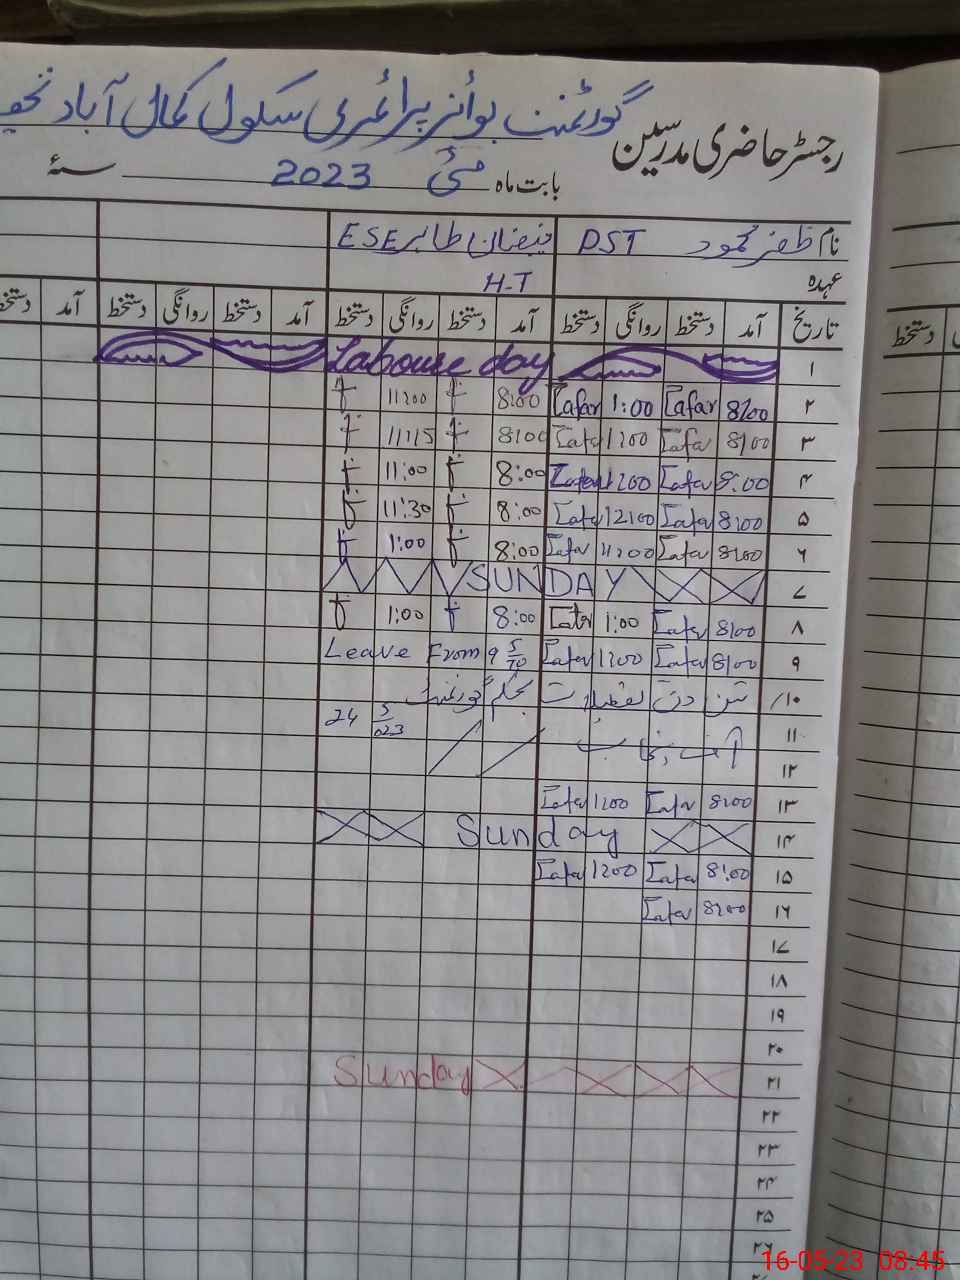 گورنمنٹ بوائز پرائمری سکول کمال آباد
رجسٹر حاضری مدرسین
بابت ماہ مئی 2023 سنۂ
نام ظفر محمود PST فیضان طاہر ESE
عہدہ H-T
تاریخ آمد دستخط روانگی دستخط آمد دستخط روانگی دستخط آمد دستخط روانگی دستخط آمد دستخط
۱ Labour day
۲ 8:00 Zafar 1:00 Zafar 8:00 11:00
۳ 8:00 Zafar 1:00 Zafar 8:00 11:15
۴ 8:00 Zafar Zafar 8:00 11:00
۵ 8:00 Zafar 12:00 Zafar 8:00 11:30
۶ 8:00 Zafar Zafar 8:00 1:00
۷ SUNDAY
۸ 8:00 Zafar 1:00 Zafar 8:00 1:00
۹ 8:00 Zafar 1:00 Zafar Leave From 9
۱۰ تین دن تعطیلات بحکم گورنمنٹ
۱۱ آف پنجاب 24 5
۱۲
۱۳ 8:00 Zafar 1:00 Zafar
۱۴ Sunday
۱۵ 8:00 Zafar 1:00 Zafar
۱۶ 8:00 Zafar
۱۷
۱۸
۱۹
۲۰
۲۱ Sunday
۲۲
۲۳
۲۴
۲۵
۲۶
دستخط
16-05-23 08:45